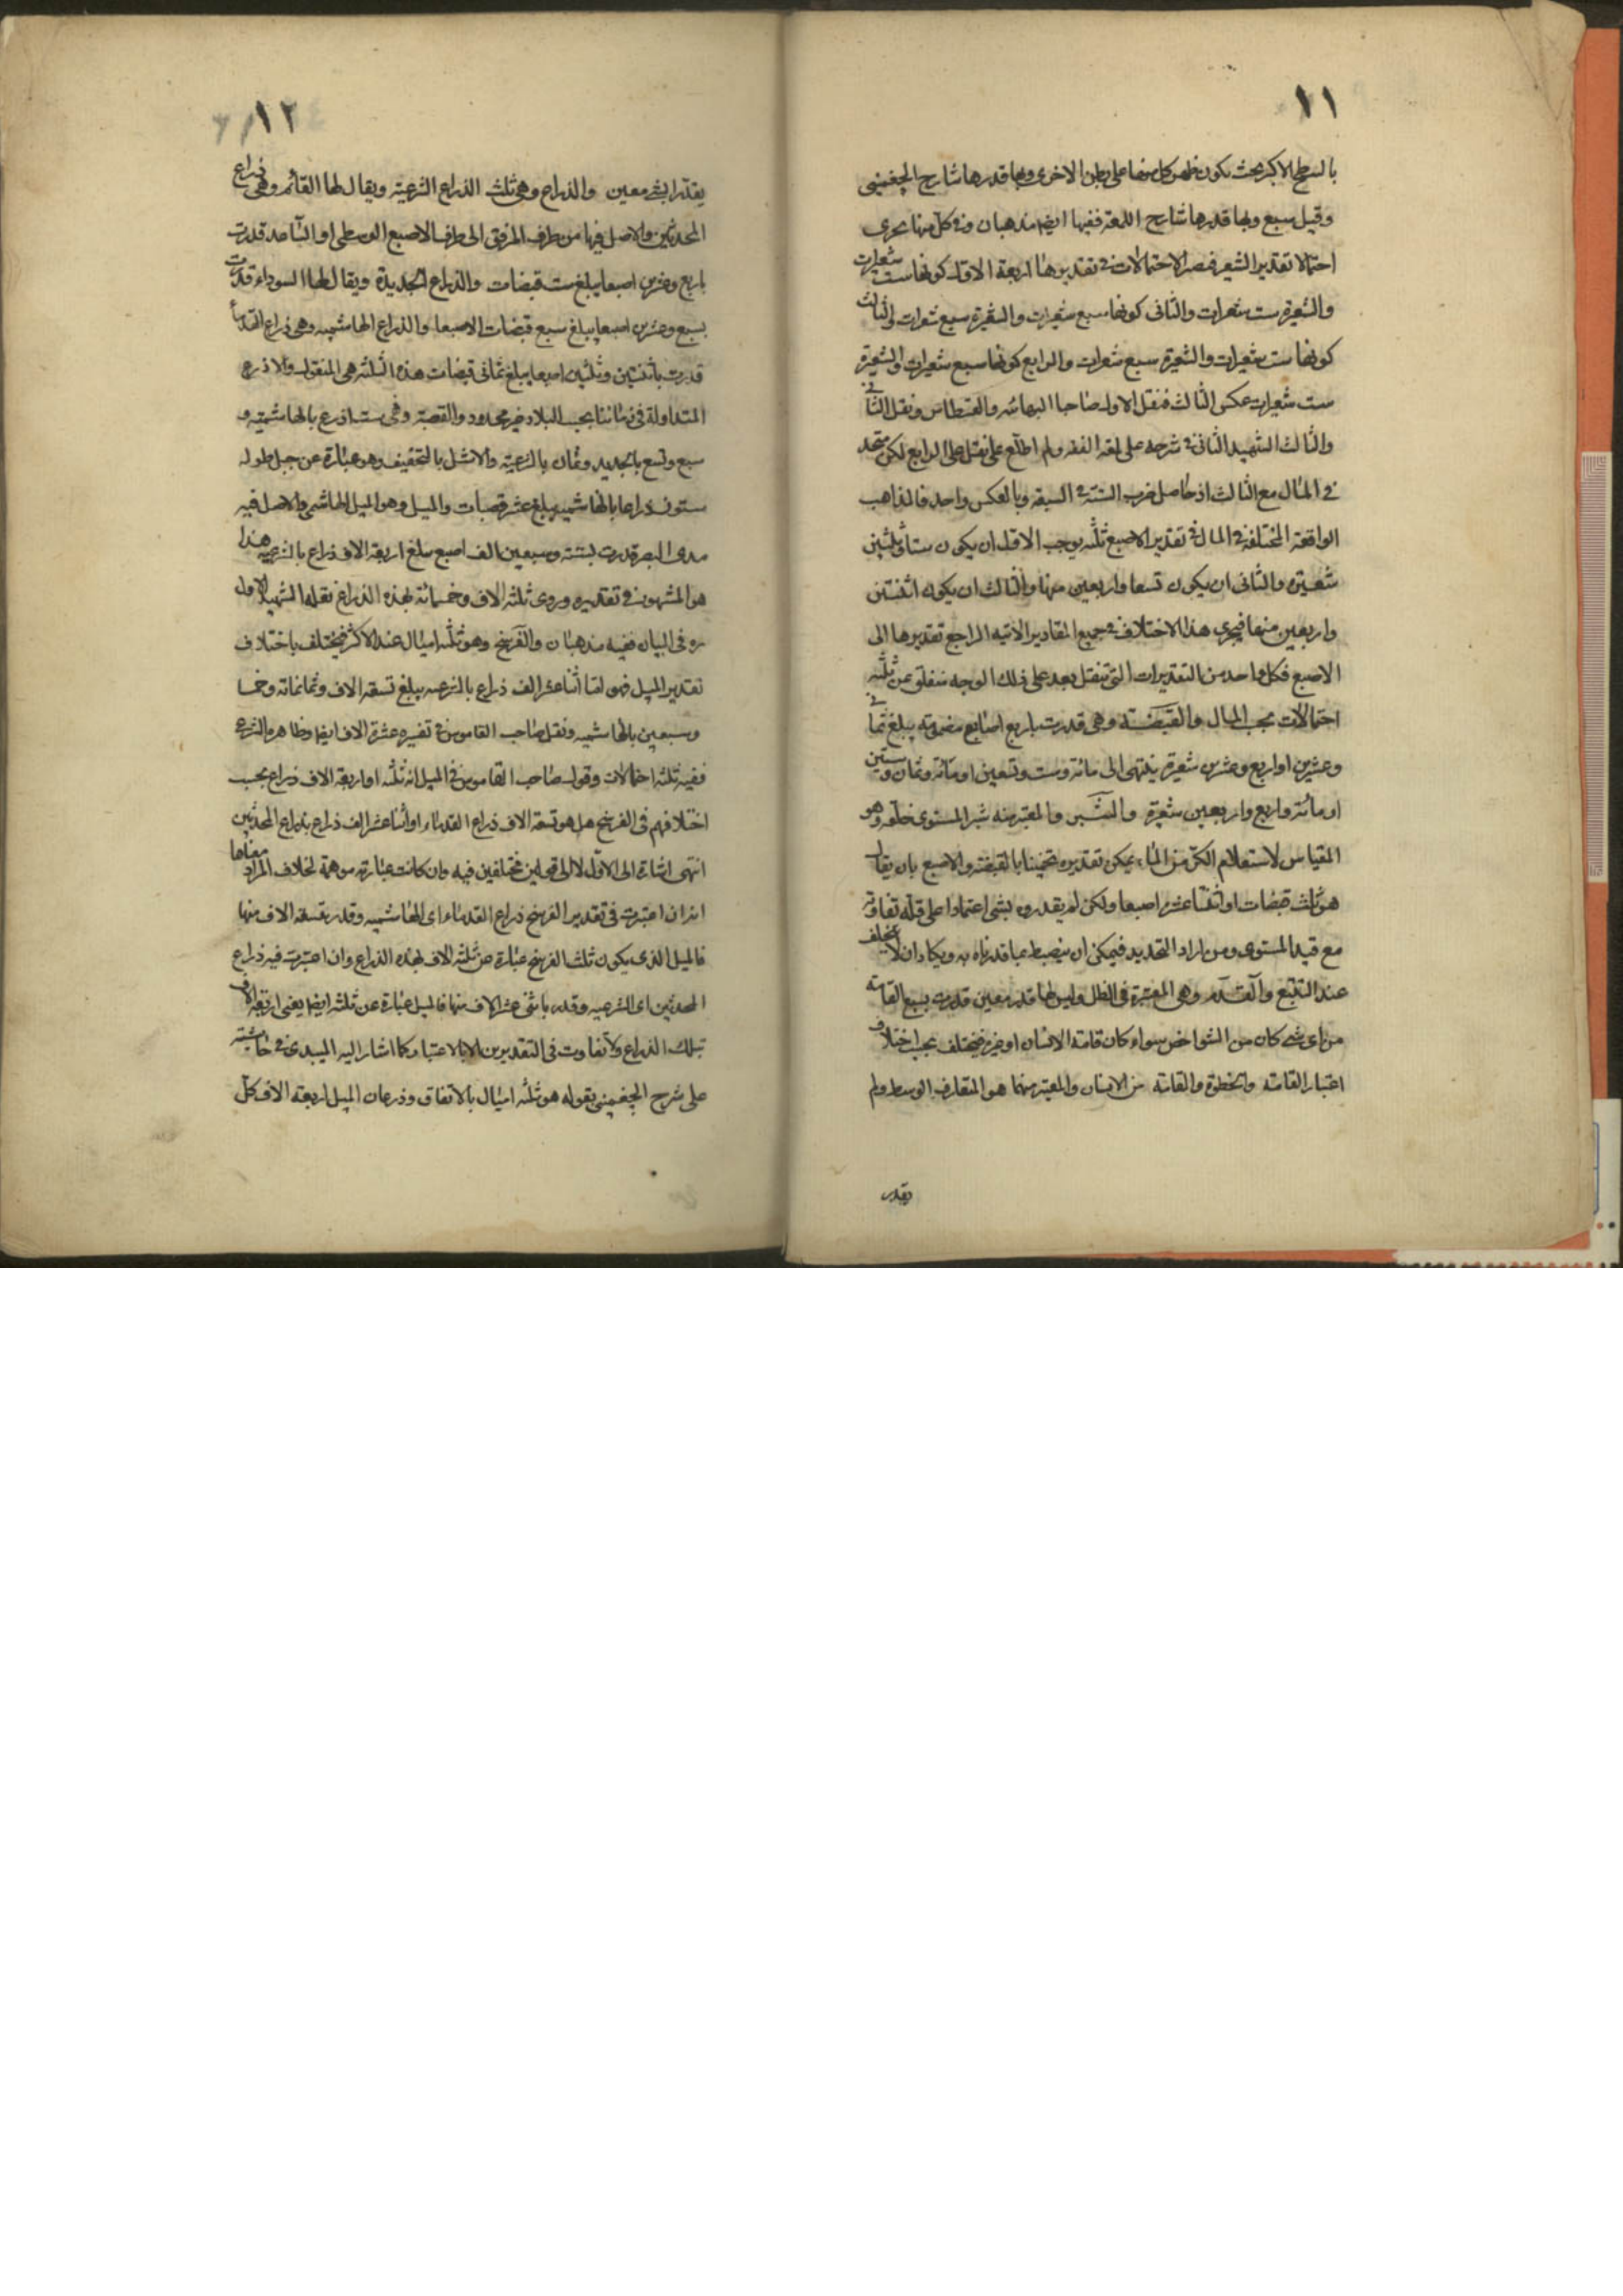 ١١
بالسطح الاكبر بحيث يكون ظهر كل منها على بطن الاخرى وبها قدرها شارح الچغمینی
وقيل سبع وبها قدرها شارح اللمعة ففيها ايضا مذهبان وفي كل منها يجرى
احتمالا تقدير الشعير فصار الاحتمالات في تقديرها اربعة الاول كونها ست شعيرات
والشعيرة ست شعرات والثانى كونها سبع شعيرات والشعيرة سبع شعرات والثالث
كونها ست شعيرات والشعيرة سبع شعرات والرابع كونها سبع شعيرات والشعيرة
ست شعرات عكس الثالث فنقل الاول صاحبا البهائيه والقسطاس ونقل الثانى
والثالث الشهيد الثانى في شرحه على لمعة الفقه ولم اطلع على نقل على الرابع لكن متحد
في المآل مع الثالث اذ حاصل ضرب الستة في السبعة وبالعكس واحد فالمذاهب
الواقعة المختلفة في المآل في تقدير الاصبع ثلثه يوجب الاول ان يكون ستا وثلثين
شعرة والثانى ان يكون تسعا واربعين منها والثالث ان يكون اثنتين
واربعين منها فيجرى هذا الاختلاف في جميع المقادير الآتيه الراجع تقديرها الى
الاصبع فكل واحد من التقديرات التى تنقل بعد على ذلك الوجه منفلق عن ثلثه
احتمالات بحسب المآل والقبضة وهى قدرت باربع اصابع مضمومه يبلغ ثمانى
وعشرين او اربع وعشرين شعيرة ينتهى الى مائة وست وتسعين او مائة وثمان وستين
او مائة واربع واربعين شعرة والشبر والمعتبر منه شبر المستوى خلقه وهو
المقياس لاستعلام الكر من الماء يمكن تقديره تخمينا بالقبضة والاصبع بان يقال
هو ثلث قبضات او اثنتا عشرة اصبعا ولكن لم يقدروه بشى اعتمادا على قلة تفاوته
مع قيد المستوى ومن اراد التحديد فيمكن ان ينضبط بما قدرناه به ويكاد ان لا يختلف
عند التتبع والقدم وهى المعتبرة في الظل وليس لها قدر معين قدرت بسبع القامه
من اى شى كان من الشواخص سواء كان قامة الانسان او غيره فيختلف بحسب اختلاف
اعتبار القامة والخطوة والقامة من الانسان والمعتبر منهما هو المتعارف الوسط ولم
يقدر
١٢
يقدرا بشى معين والذراع وهى ثلث الذراع الشرعية ويقال لها القائم وهى ذراع
المحدثين والاصل فيها من طرف المرفق الى طرف الاصبع الوسطى او الساعد قدرت
باربع وعشرين اصبعا يبلغ ست قبضات والذراع الجديدة ويقال لها السوداء قدرت
بسبع وعشرين اصبعا يبلغ سبع قبضات الاصبعا والذراع الهاشميه وهى ذراع القدماء
قدرت باثنتين وثلثين اصبعا يبلغ ثمانى قبضات هذه الثلثه هى المنقول والاذرع
المتداولة في زماننا بحسب البلاد غير محدود والقصبة وهى ست اذرع بالهاشمية و
سبع وتسع بالجديد وثمان بالشرعية والاشل بالتخفيف وهو عبارة عن حبل طوله
ستون ذراعا بالهاشميه يبلغ عشر قصبات والميل وهو الميل الهاشمى والاصل فيه
مدى البصر قدرت بستة وتسعين الف اصبع يبلغ اربعة الاف ذراع بالشرعية هذا
هو المشهور في تقديره وروى ثلثة الاف وخمسائة بهذه الذراع نقله الشهيد الاول
ره في البيان ففيه مذهبان والفرسخ وهو ثلثه اميال عند الاكثر فيختلف باختلاف
تقدير الميل فهو لنا اثنا عشر الف ذراع بالشرعيه يبلغ تسعة الاف وثمانمائه وخمسا
وسبعين بالهاشميه ونقل صاحب القاموس في تفسيره عشرة الاف ايضا وظاهره الشرع
ففيه ثلثه احتمالات وقول صاحب القاموس في الميل انه ثلثه او اربعة الاف ذراع بحسب
اختلافهم في الفرسخ هل هو تسعة الاف ذراع القدماء او اثنا عشر الف ذراع بذراع المحدثين
انتهى اشارة الى الاول لا الى قولين مختلفين فيه وان كانت عبارته موهمة لخلاف المراد معناها
انه ان اعتبرت في تقدير الفرسخ ذراع القدماء اى الهاشميه وقدر بتسعة الاف منها
فالميل الذى يكون ثلث الفرسخ عبارة عن ثلثة الاف بهذه الذراع وان اعتبرت فيه ذراع
المحدثين اى الشرعيه وقدر باثنى عشر الاف منها فالميل عبارة عن ثلثه ايضا يعنى اربعة الاف
بتلك الذراع ولا تفاوت في التقديرين الا بالاعتبار كما اشار اليه الميبدى في حاشيته
على شرح الچغمینی بقوله هو ثلثه اميال بالاتفاق وذرعان الميل اربعة الاف كل